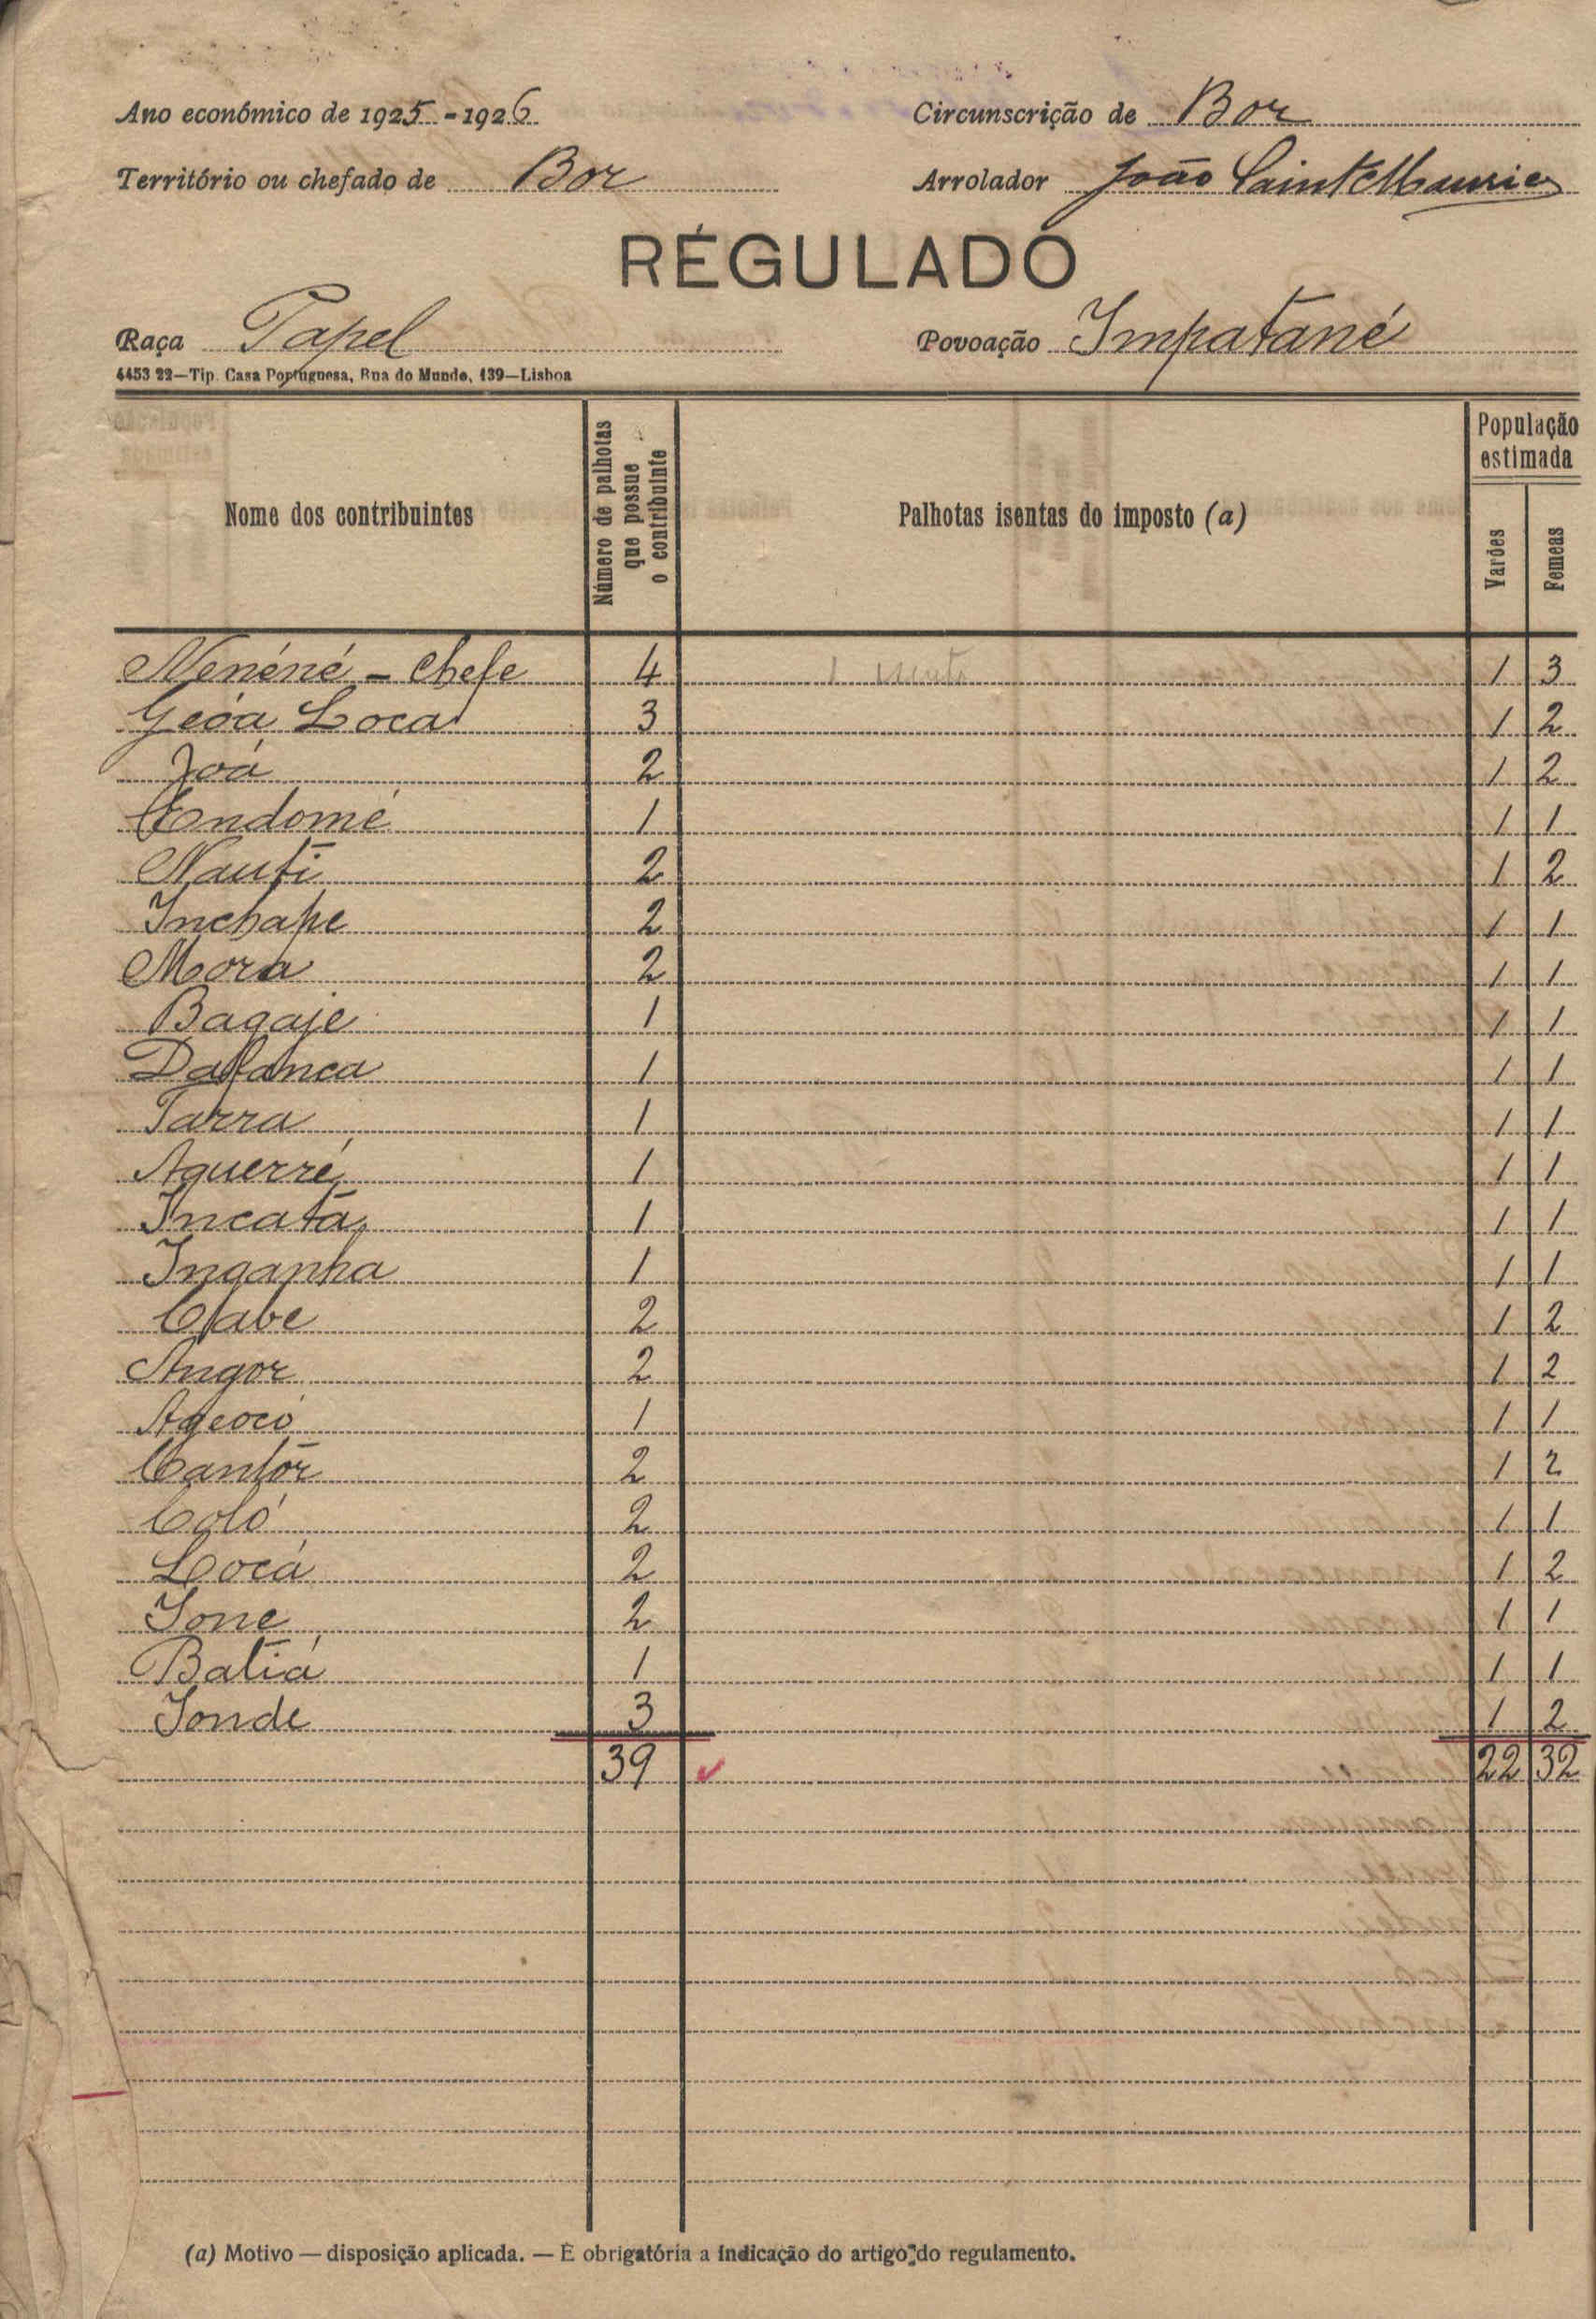 Ano económico de 1925-1926 Circunscrição de Bor
Território ou chefado de Bor Arrolador João Saint Maurice
RÉGULADO
Raça Papel Povoação Impatané
4453 22—Tip. Casa Portuguesa, Rua do Mundo, 139—Lisboa
Nome dos contribuintes
Número de palhotas que possue o contribuinte
Palhotas isentas do imposto (a)
População estimada
Varões Femeas
Nenéné - Chefe 4 1 isenta 1 3
Geóa Loca 3 1 2
Joá 2 1 2
Endomé 1 1 1
Nauti 2 1 2
Inchape 2 1 1
Mora 2 1 1
Bagaje 1 1 1
Dafanca 1 1 1
Tarra 1 1 1
Aguerré 1 1 1
Incatá 1 1 1
Inganha 1 1 1
Cabe 2 1 2
Angor 2 1 2
Ageocó 1 1 1
Cantór 2 1 2
Coló 2 1 1
Locá 2 1 2
Ione 2 1 1
Batiá 1 1 1
Jonde 3 1 2
39 22 32
(a) Motivo — disposição aplicada. — É obrigatória a indicação do artigo do regulamento.